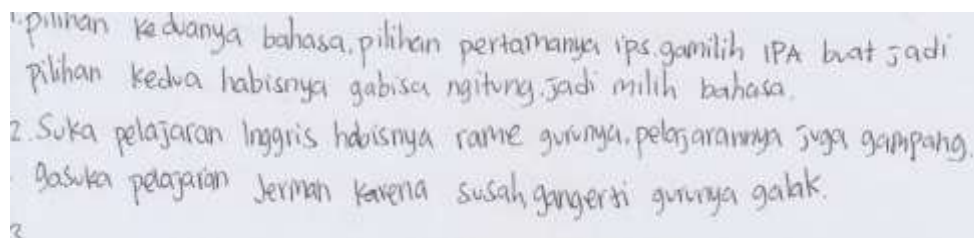 1. pilihan keduanya bahasa, pilihan pertamanya ips. gamilih IPA buat jadi
pilihan kedua habisnya gabisa ngitung. Jadi milih bahasa.
2. Suka pelajaran Inggris habisnya rame gurunya. pelajarannya juga gampang.
gasuka pelajaran Jerman karena susah, gangerti gurunya galak.
3